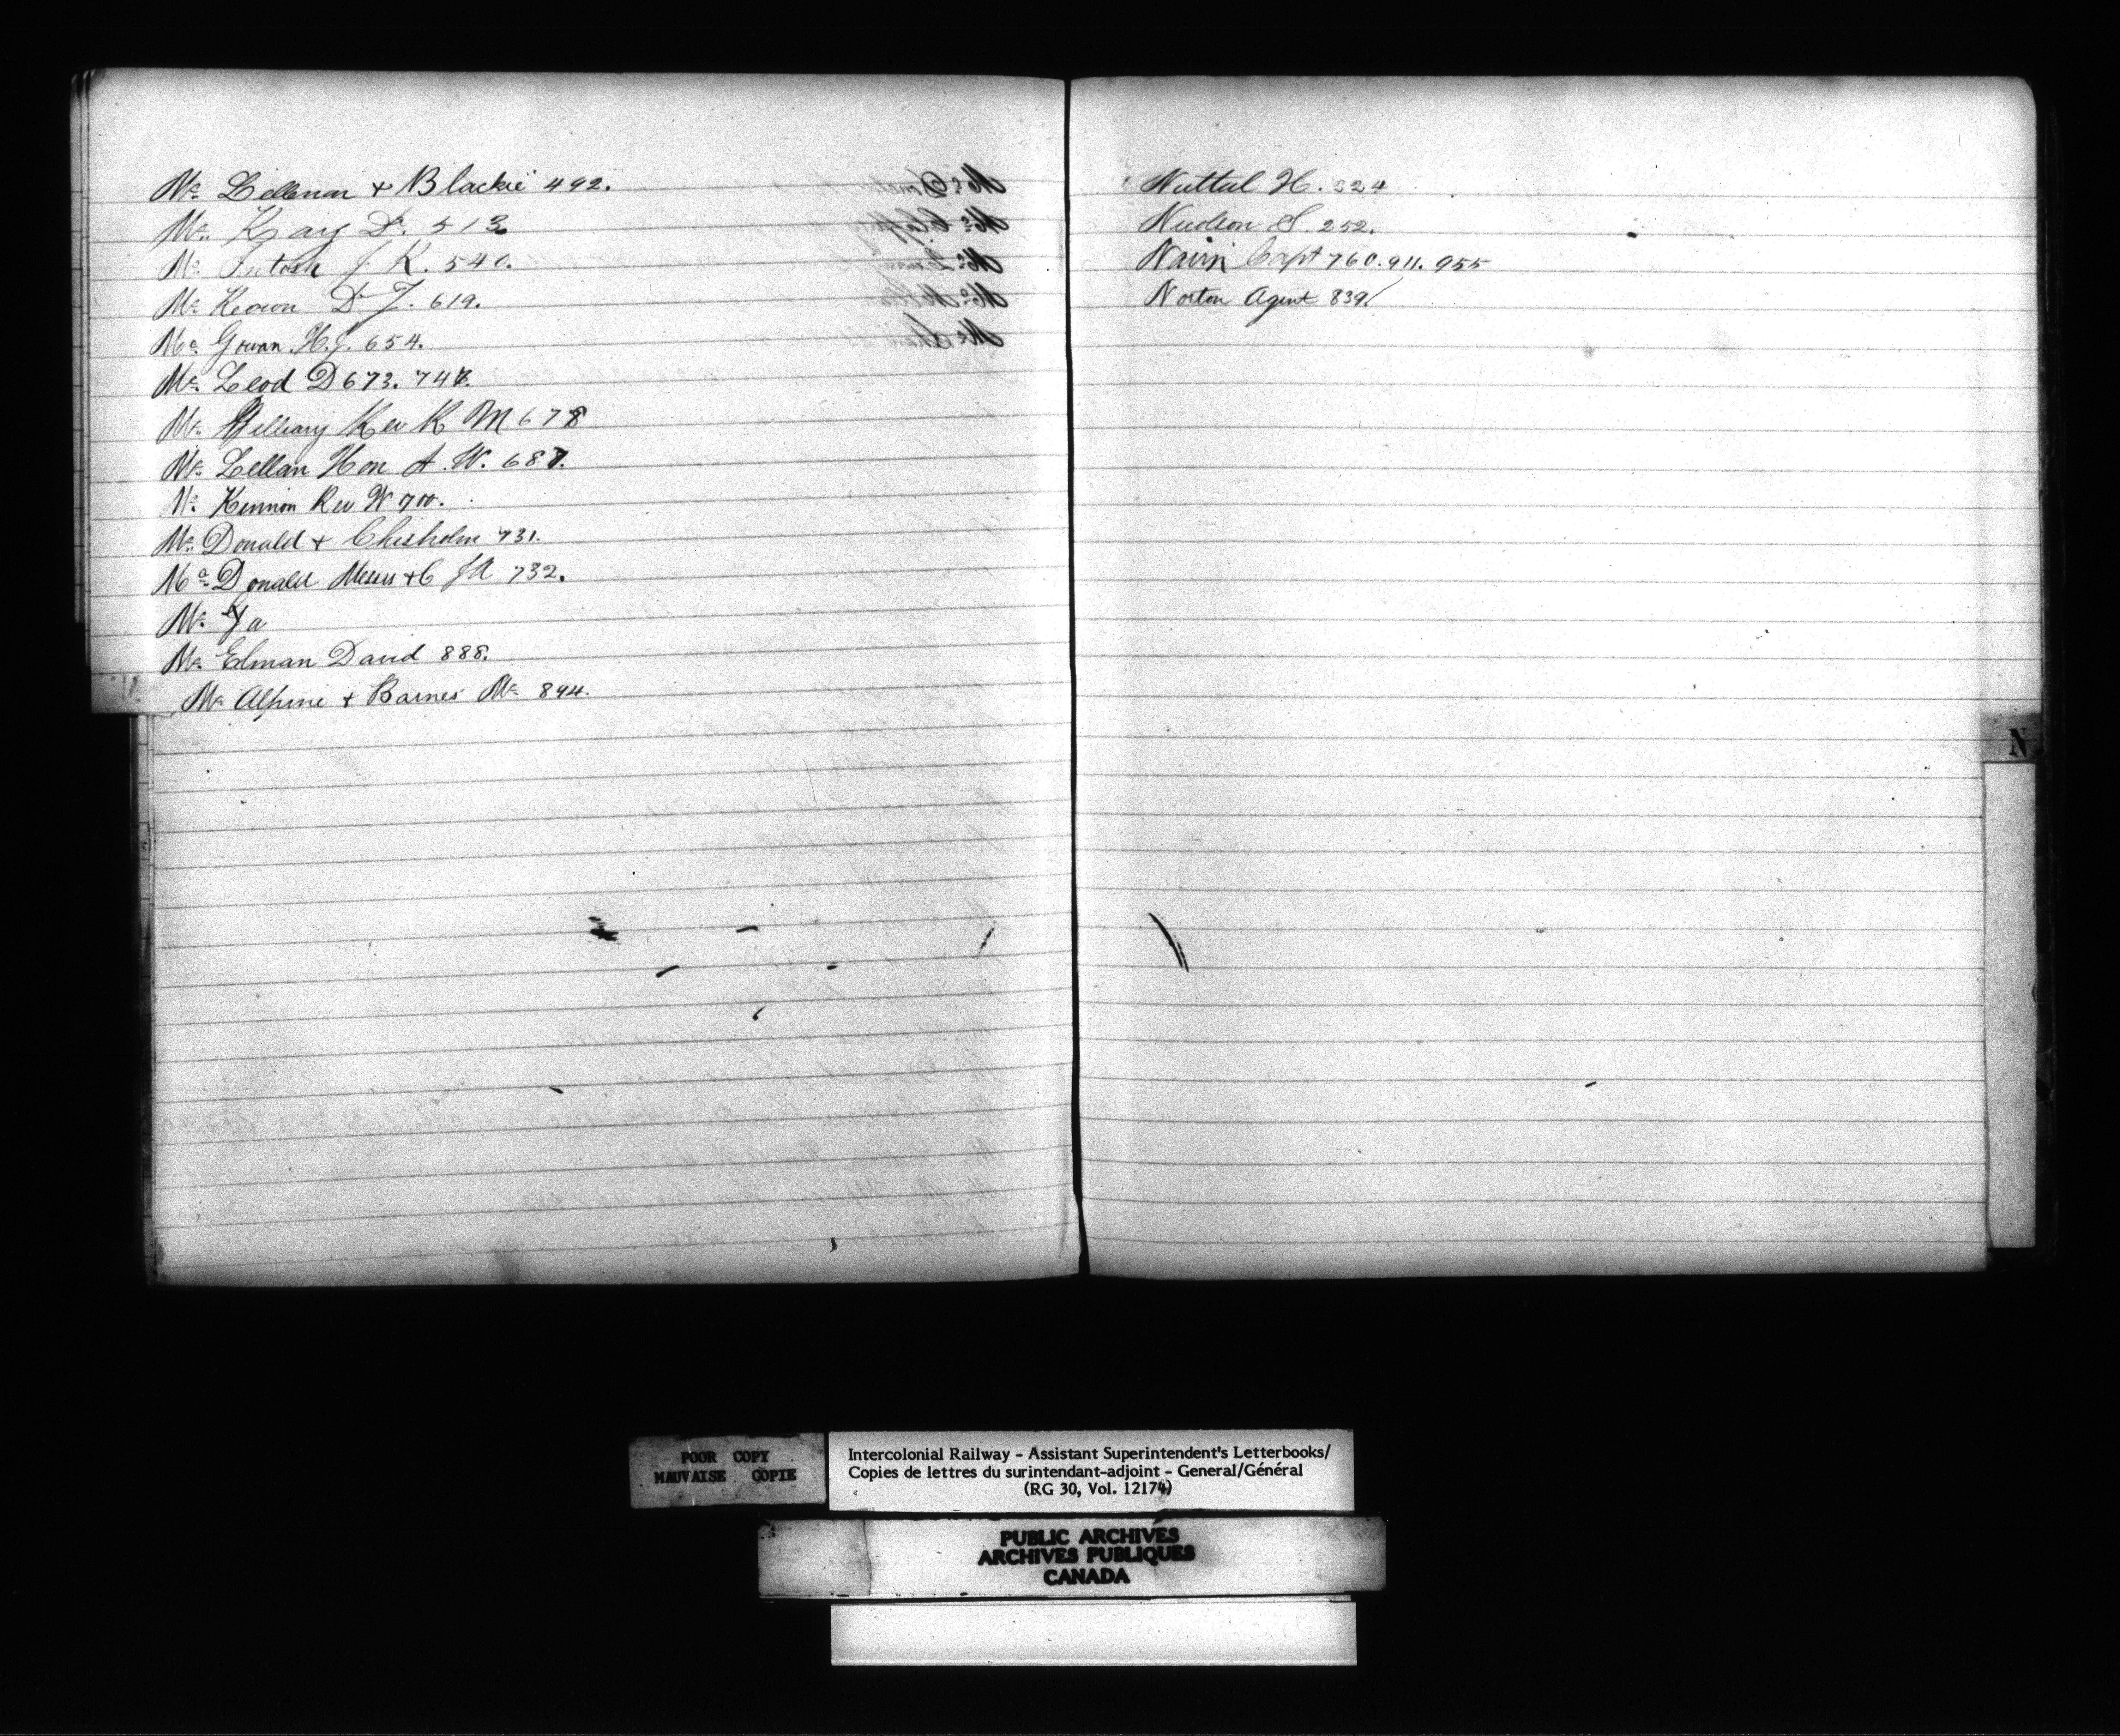 Mc Lellenan + Blackie 492.
Mc Kay D. 513
Mc Intosh J K. 540.
Mc Keown D J. 619.
Mc Gowan. H. J. 654.
Mc Leod D 673. 747.
Mc Rev K M 678
Mc Lellan Hon A. W. 687.
Mc Kinnon Rev W 700.
Mc Donald + Chisholm 731.
Mc Donald Messrs + C JA 732.
Mc
Mc Elman David 888.
Mc Alpine + Barnes Mc 894.
Nuttal H. 224
S. 252.
Nairn Capt 760. 911. 955
Norton Agent 839
N
POOR COPY
MAUVAISE COPIE
Intercolonial Railway - Assistant Superintendent's Letterbooks/
Copies de lettres du surintendant-adjoint - General/Général
(RG 30, Vol. 12174)
PUBLIC ARCHIVES
ARCHIVES PUBLIQUES
CANADA